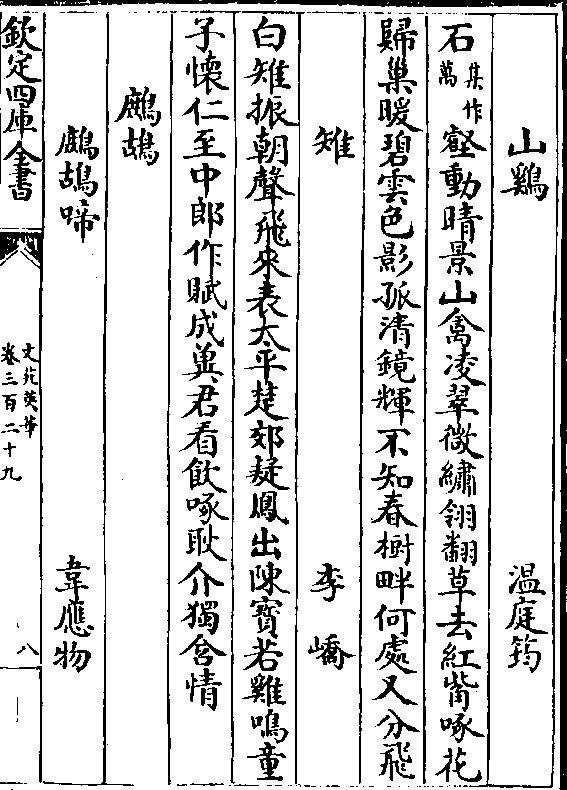 山鷄 温庭筠
石集作萬壑動晴景山禽凌翠微繡翎翻草去紅觜啄花
歸巢暖碧雲色影孤清鏡輝不知春樹畔何處又分飛
雉 李嶠
白雉振朝聲飛來表太平楚郊疑鳳出陳寳若雞鳴童
子懐仁至中郎作賦成兾君看飲啄耿介獨含情
鷓鴣
鷓鴣啼 韋應物
欽定四庫全書
文苑英華
卷三百二十九
八